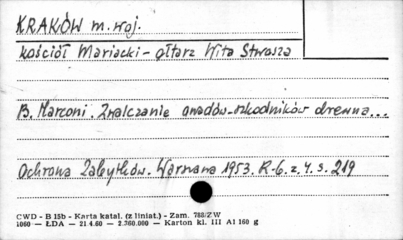 KRAKÓW m. woj.
Kościół Mariacki - ołtarz Wita Stwosza
B. Marconi. Zwalczanie owadów-szkodników drewna...
Ochrona Zabytków. Warszawa 1953. R-6. z. 4. s. 219
CWD - B 15b - Karta katal. (z liniat.) - Zam. 788/ZW
1060 — ŁDA — 21 4.60 — 2.760.000 — Karton kl. III A1 160 g